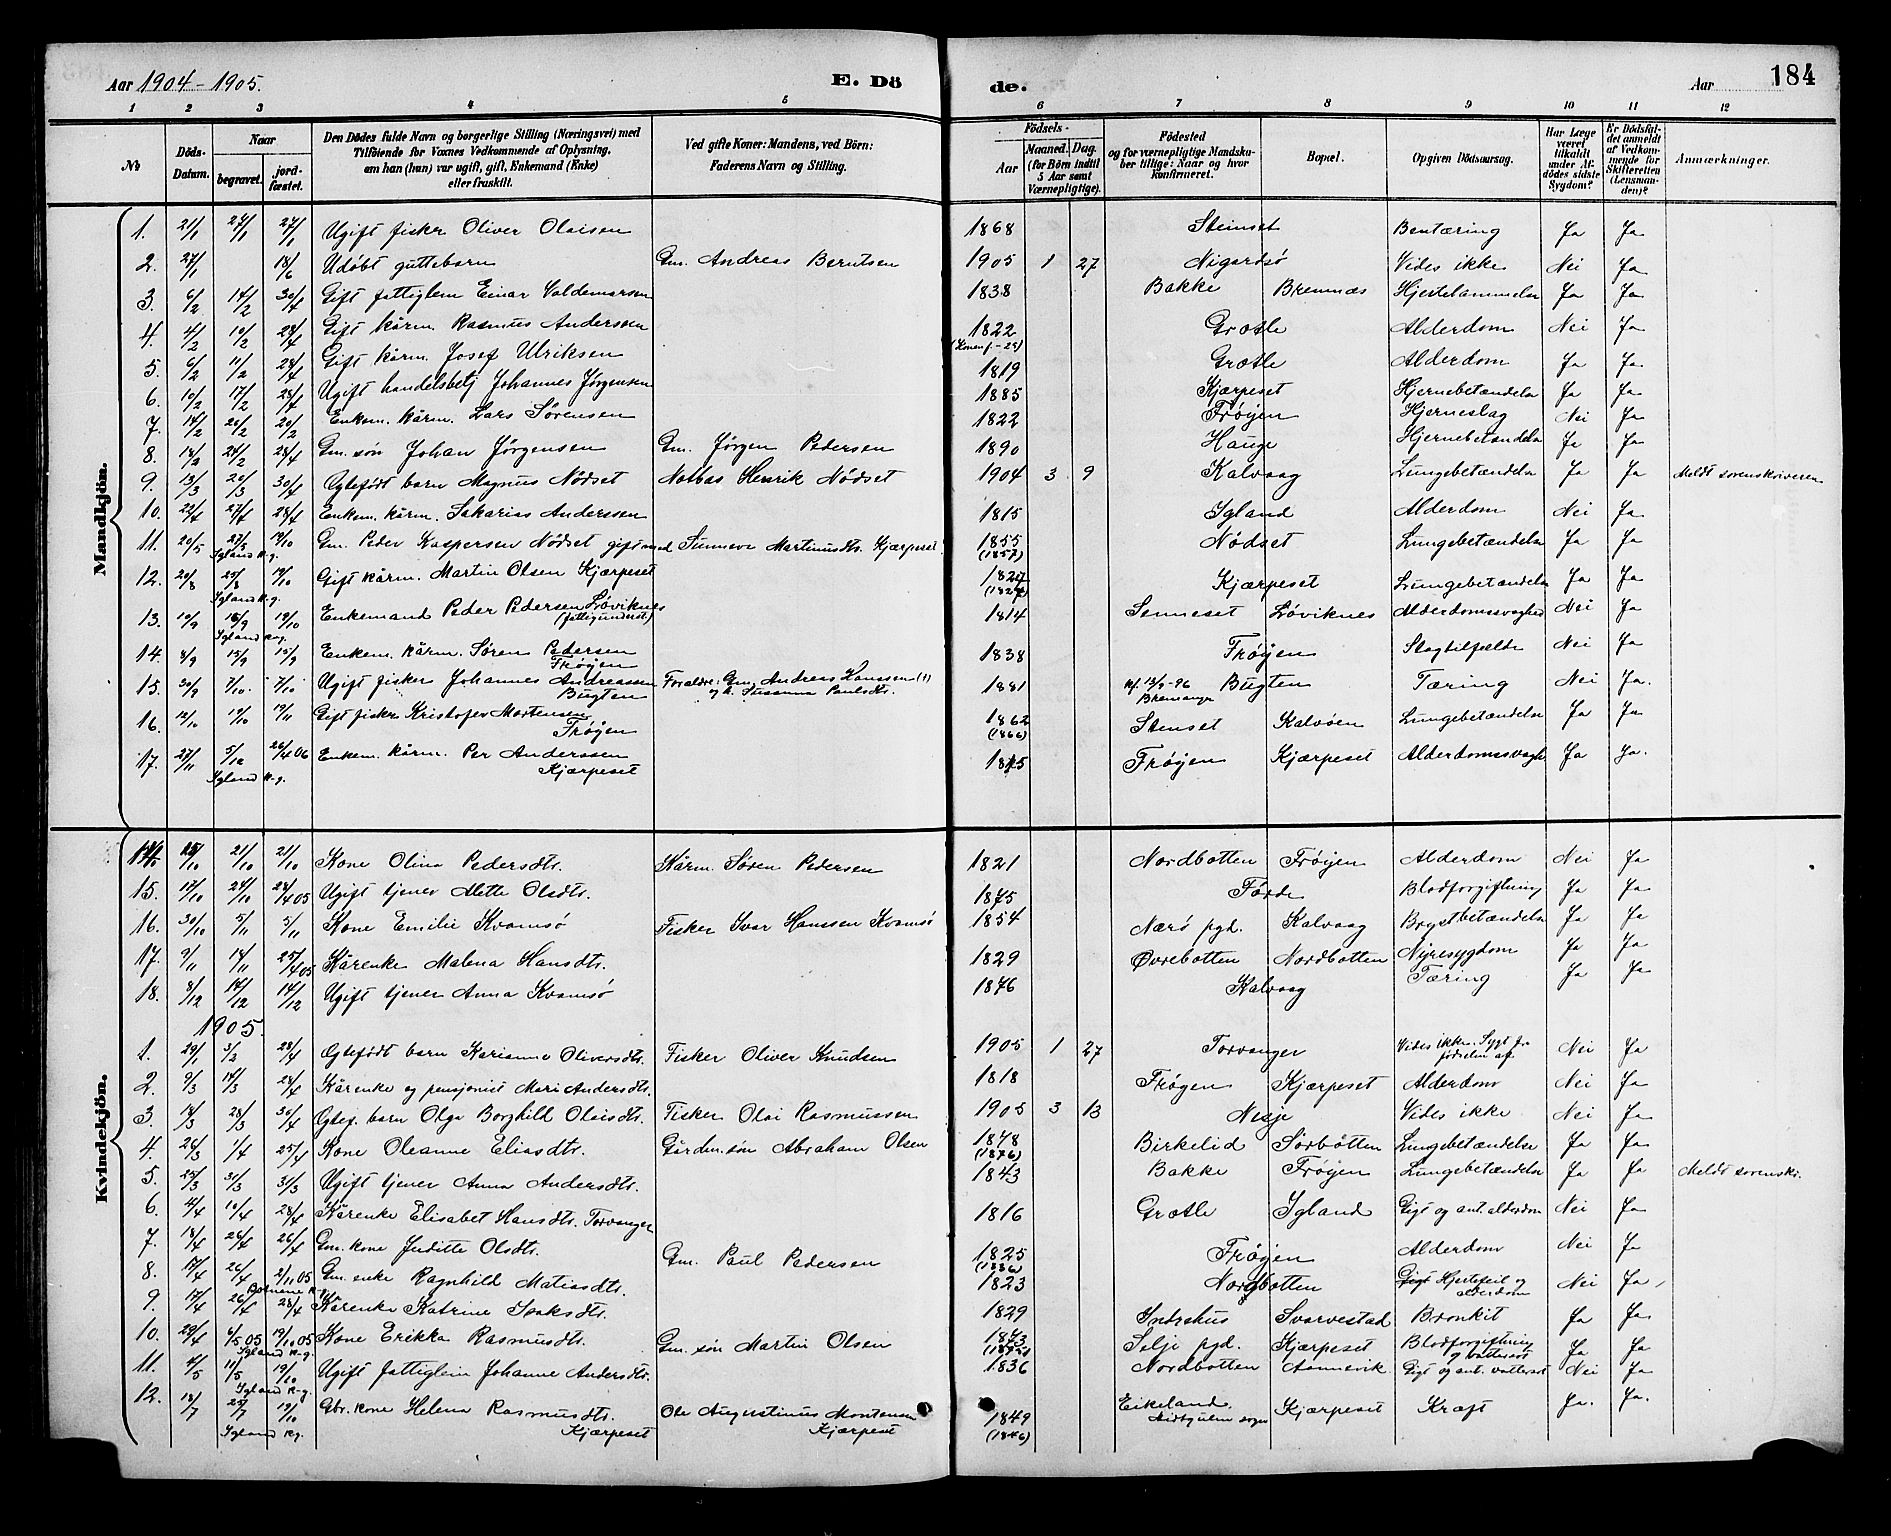 Aar 1904-1905. E. Dö de. Aar 184
1 2 3 4 5 6 7 8 9 10 11 12
No Döds-Datum. Naar begravet. jordfæstet. Den Dödes fulde Navn og borgerlige Stilling (Næringsvei) med Tilföiende for Voxnes Vedkommende af Oplysning, om han (hun) var ugift, gift, Enkemand (Enke) eller fraskilt. Ved gifte Koner: Mandens, ved Börn: Faderens Navn og Stilling. Födsels- Aar Maaned. Dag. (for Börn indtil 5 Aar samt Værnepligtige). Födested og for værnepligtige Mandskaber tillige: Naar og hvor konfirmeret. Bopæl. Opgiven Dödsaarsag. Har Læge været tilkaldt under Afdödes sidste Sygdom? Er Dödsfaldet anmeldt af Vedkommende for Skifteretten (Lensmanden)? Anmærkninger.
Mandkjön.
1. 21/1 24/1 27/1 Ugift fisker Oliver Olaisen 1868 Steinset Bentæring Ja Ja
2. 27/1 18/6 Udöbt guttebarn Gm. Andreas Berntsen 1905 1 27 Nigardsö Vides ikke Nei Ja
3. 6/2 14/2 30/4 Gift fattiglem Einar Valdemarsen 1838 Bakke Bremnæs Hjertelammelse Ja Ja
4. 4/2 10/2 28/4 Gift kårm. Rasmus Anderssen 1822 Grotle Alderdom Nei Ja
5. 6/2 11/2 28/4 Gift kårm. Josef Ulriksen 1819 Grotle Alderdom Ja Ja
6. 10/2 17/2 28/4 Ugift handelsbetj Johannes Jörgensen 1885 Kjærpeset Hjernebetændelse Ja Ja
7. 14/2 20/2 20/2 Enkem. kårm. Lars Sörensen 1822 Fröyen Hjerneslag Nei Ja
8. 18/2 24/2 28/4 Gm. sön Johan Jörgensen Gm. Jörgen Pedersen 1890 Hauge Hjernebetændelse Ja Ja
9. 13/3 20/3 30/4 Ogtefödt barn Magnus Nödset Notbas Henrik Nödset 1904 3 9 Kalvaag Lungebetændelse Ja Ja Meldt sorenskriveren
10. 22/4 27/4 28/4 Enkem. kårm. Sakarias Anderssen 1815 Igland Alderdom Nei Ja
11. 20/5 27/5 19/10 Gm. Peder Kaspersen Nödset gift med Sunneva Martinusdtr. Kjærpeset. 1855 (1857) Nödset Lungebetændelse Ja Ja
Igland k-g.
12. 20/8 25/8 19/10 Gift kårm. Martin Olsen Kjærpeset 1827 Kjærpeset Lungebetændelse Ja Ja
Igland k-g.
13. 10/9 16/9 19/10 Enkemand Peder Pedersen Lövik­nes (fattigunderst.) 1814 Senneset Löviknes Alderdomssvaghed Nei Ja
Igland k-g.
14. 8/9 15/9 15/9 Enkem. kårm. Sören Pedersen Fröyen 1838 Fröyen Slagtilfælde Nei Ja
15. 30/9 7/10 7/10 Ugift fisker Johannes Andreassen Bugten Foraldre: Gm. Andreas Hanssen og h. Susanna Paulsdtr. 1881 kf. 13/9-96 Bremanger Bugten Tæring Nei Ja.
16. 12/10 19/10 19/11 Gift fisker Kristofer Mortensen Fröyen 1862 (1866) Stenset Kalvöen Lungebetændelse Ja Ja
17. 27/11 5/12 26/4 06 Enkem. kårm. Per Anderssen Kjærpeset Fröyen Kjærpeset Alderdomssvagh. Ja Ja.
Igland k-g.
Kvindekjön.
14. 15/10 21/10 21/10 Kone Olina Pedersdtr. Kårm. Sören Pedersen 1821 Nordbotten Fröyen Alderdom Nei Ja
15. 17/10 24/10 28/4 05 Ugift tjener Mette Olsdtr. 1875 Förde Blodforgiftning Ja Ja
16. 30/10 5/11 5/11 Kone Emilie Kvamsö Fisker Ivar Hanssen Kvamsö 1854 Nærö pgd. Kalvaag Brystbetændelse Ja Ja
17. 9/11 14/11 25/4 05 Kårenke Malena Hansdtr. 1829 Övrebotten Nordbotten Nyresygdom Ja Ja
18. 8/12 14/12 14/12 Ugift tjener Anna Kvamsö 1876 Kalvaag Tæring Ja Ja
1905.
1. 29/1 3/2 28/4 Ogtefödt barn Karianna Oliversdtr. Fisker Oliver Knudsen 1905 1 27 Torvanger Vides ikke. Sygt fra födselen af Nei Ja
2. 9/3 14/3 28/4 Kårenke og pensjonist Mari Andersdtr. 1818 Fröyen Kjærpeset Alderdom Nei Ja
3. 18/3 28/3 30/4 Ogtef. barn Olga Borghild Olaisdtr. Fisker Olai Rasmussen 1905 3 13 Nesje Vides ikke Nei Ja
4. 26/3 1/4 25/4 Kone Oleanne Eliasdtr. Gårdm.sön Abraham Olsen 1878 (1876) Birkelid Sörbotten Lungebetændelse Ja Ja
5. 25/3 31/3 31/3 Ugift tjener Anna Andersdtr. 1843 Bakke Fröyen Lungebetændelse Ja Ja Meldt sorenskr.
6. 4/4 10/4 28/4 Kårenke Elisabet Hansdtr. Torvanger 1816 Grotle Igland Gigt og ant. alderdom Nei Ja
7. 18/4 26/4 26/4 Gm. kone Juditte Olsdtr. Gm. Paul Pedersen 1825 Fröyen Alderdom Nei Ja
8. 17/4 26/4 2/11 05 Gm. enke Ragnhild Matiasdtr. 1823 Nordbotten Gigt Hjertefeil og alderdom Nei Ja
9. 17/4 26/4 28/4 Kårenke Katrine Isaksdtr. 1829 Indrehus Svarvestad Bronkit Ja Ja
10. 29/4 6/5 05 19/10 05 Kone Erikka Rasmusdtr. Gm. sön Martin Olsen 1873 Selje pgd. Kjærpeset Blodforgiftning og vattersot Ja Ja
Igland k-g.
11. 4/5 11/5 19/10 Ugift fattiglem Johanne Andersdtr. 1836 Nordbotten Aannevik. Gigt og ant. vattersot Nei Ja
Igland k-g.
12. 18/7 25/7 19/10 Gbr. kone Helena Rasmusdtr. Kjærpeset Ole Augustinus Mortensen Kjærpeset 1849 (1846) Eikeland Kjærpeset Kræft Ja. Ja.
Igland kg.